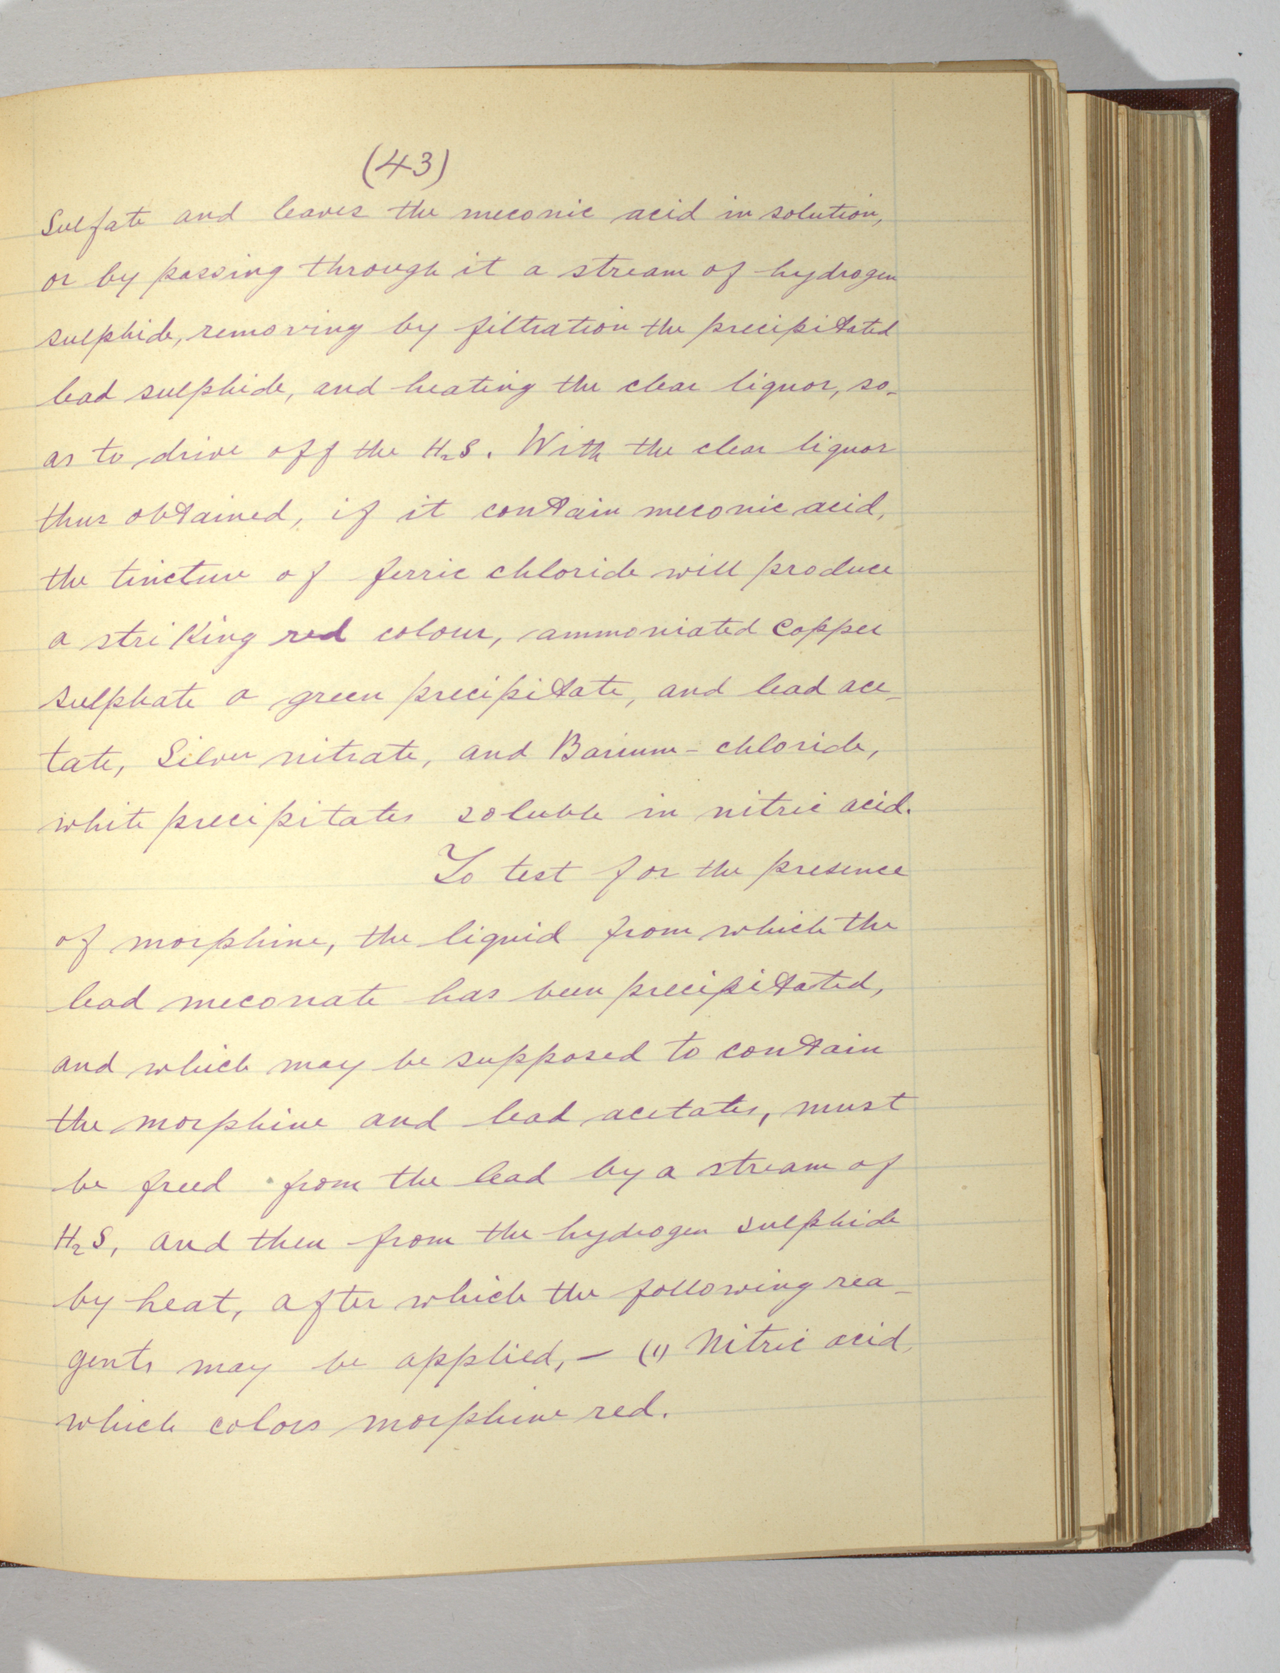 (43)
Sulfate and leaves the meconic acid in solution,
or by passing through it a stream of hydrogen
sulphide, removing by filtration the precipitated
lead sulphide, and heating the clear liquor, so
as to drive off the H2S. With the clear liquor
thus obtained, if it contain meconic acid,
the tincture of ferric chloride will produce
a striking red colour, ammoniated Copper
sulphate a green precipitate, and lead ace-
tate, Silver nitrate, and Barium-chloride,
white precipitates soluble in nitric acid.
To test for the presence
of morphine, the liquid from which the
lead meconate has been precipitated,
and which may be supposed to contain
the morphine and lead acetates, must
be freed from the lead by a stream of
H2S, and then from the hydrogen sulphide
by heat, after which the following rea-
gents may be applied, - (1) Nitric acid,
which colors morphine red.